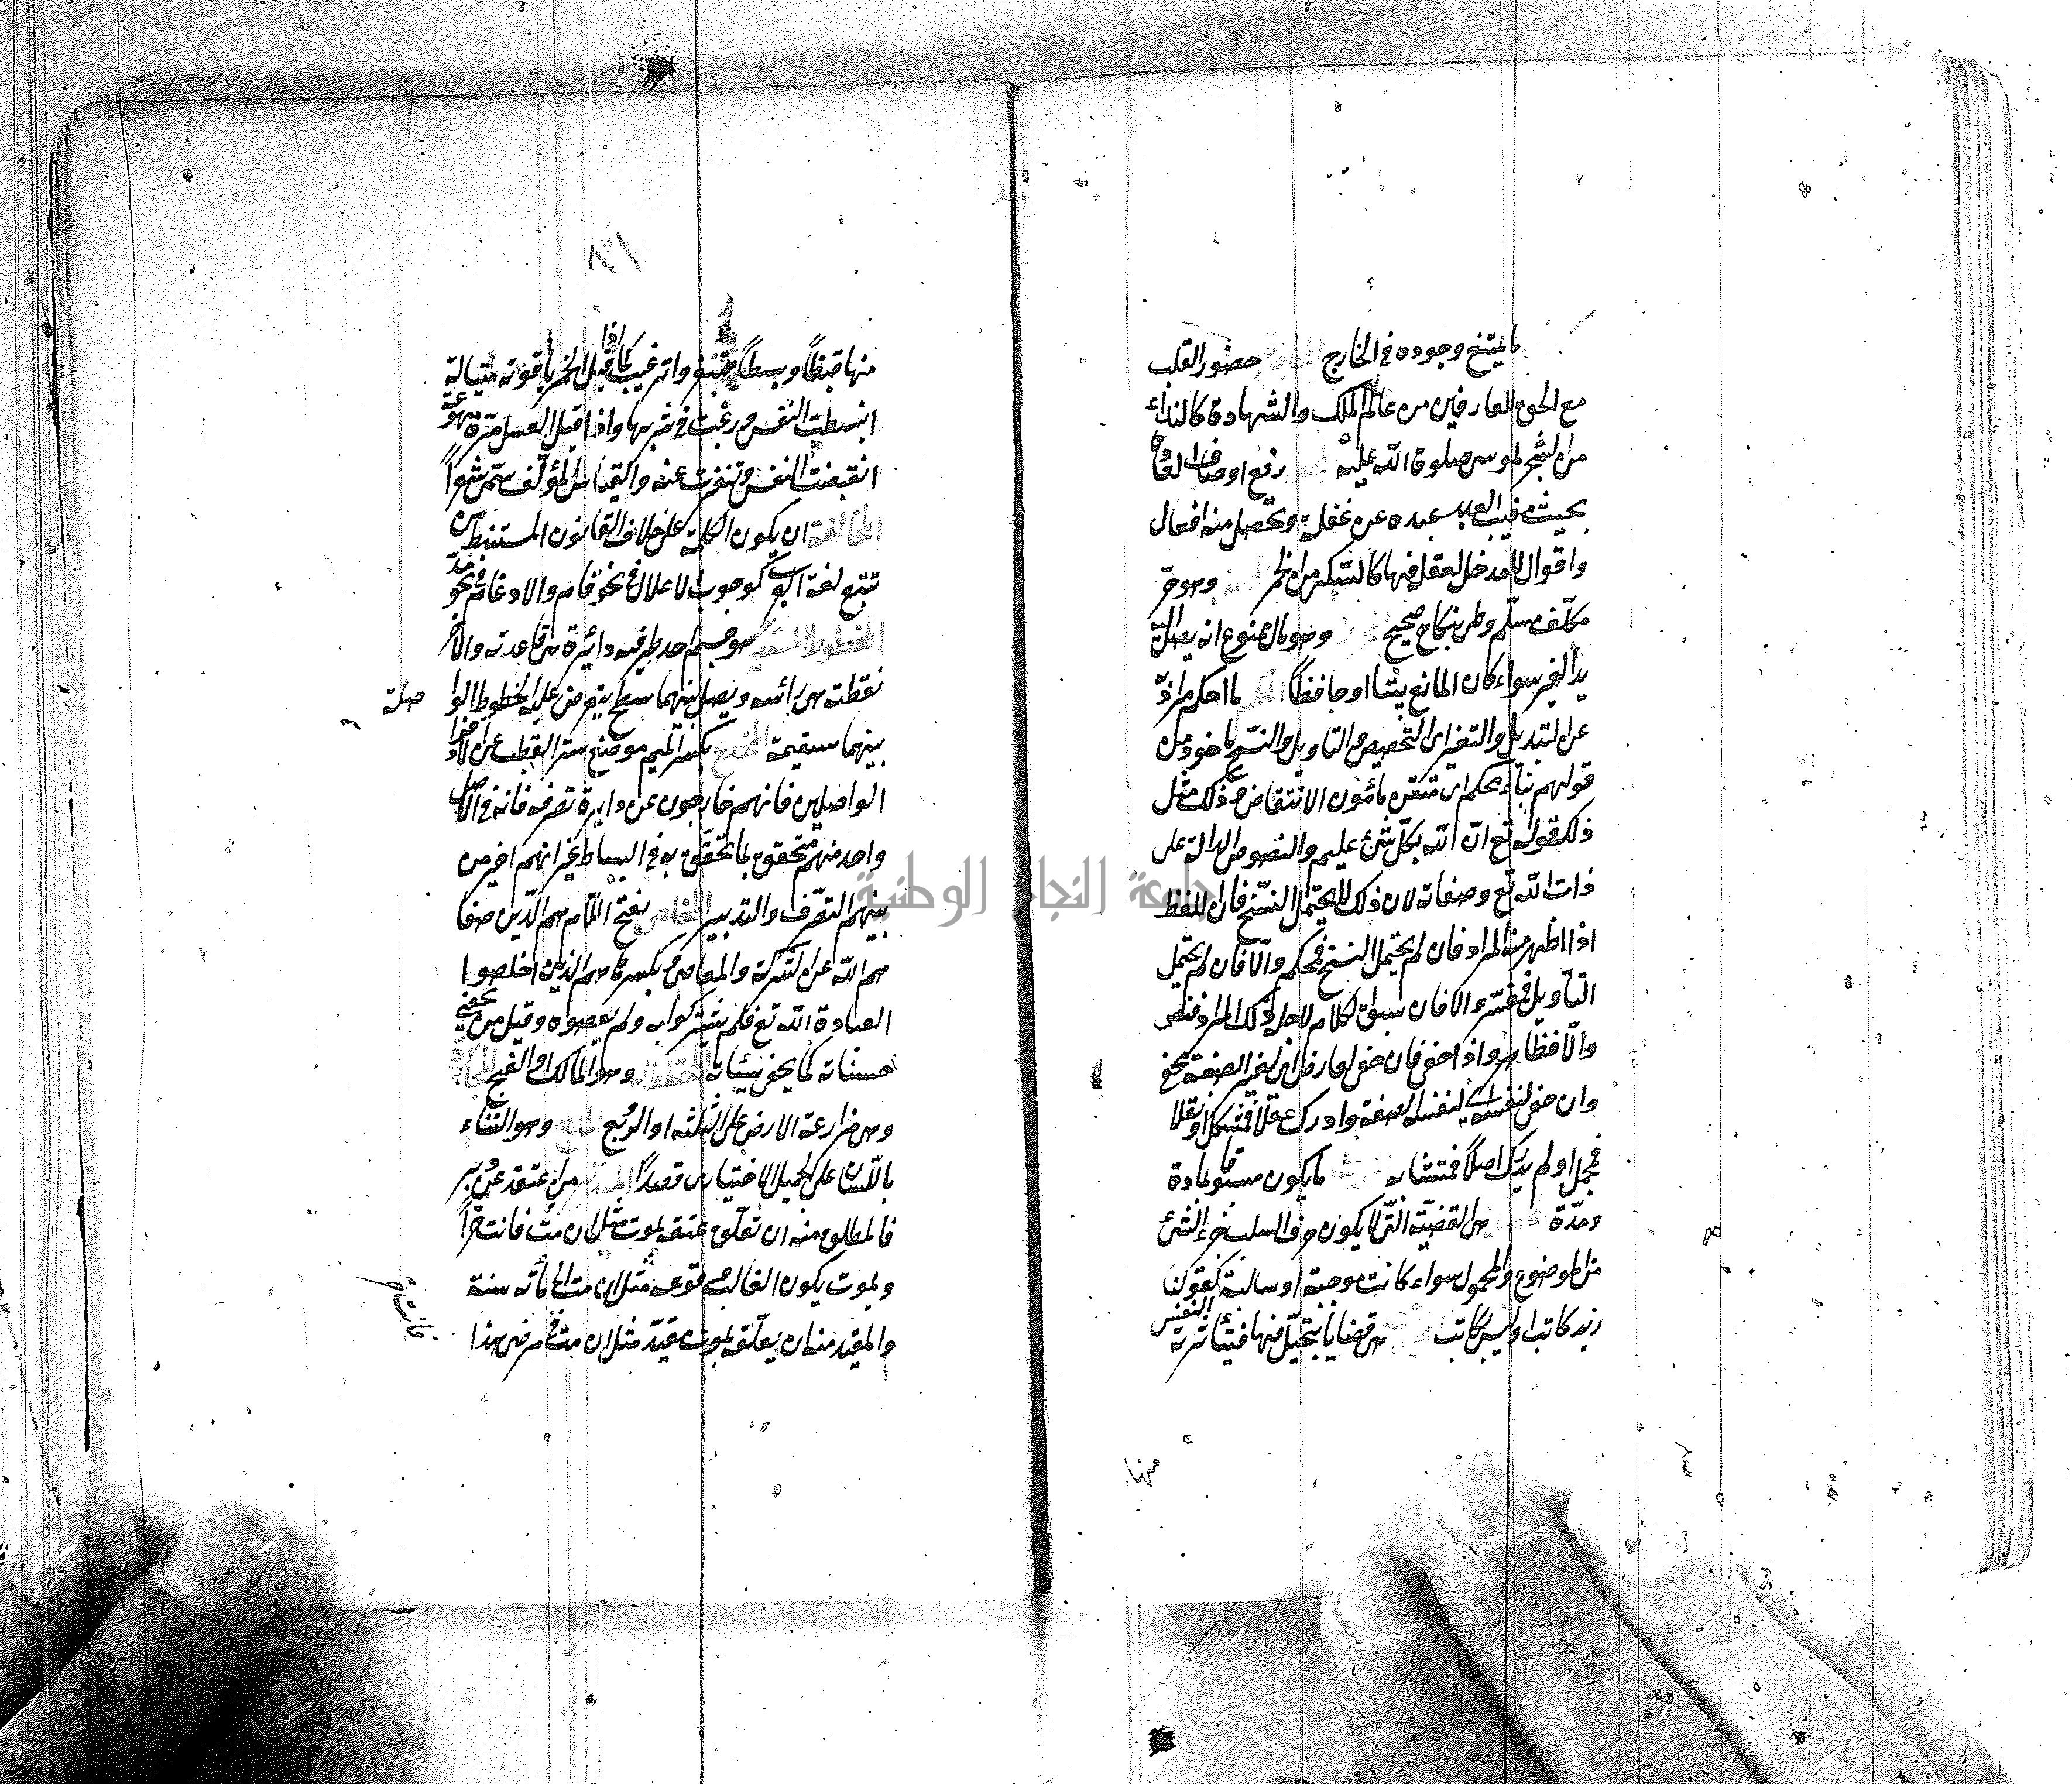 ما يمتنع وجوده في الخارج حضور القلب
مع الحق للعارفين من عالم الملك والشهادة كالنداء
من الشجر لموسى صلوة الله عليه رفع اوصاف العادة
بحيث يغيب العبد عبده عن عقله ويحصل منه افعال
واقوال لا مدخل لعقله فيها كالسكر من الخمر وهو حر
مكلف مسلم وطئ بنكاح صحيح وهو مال ممنوع ان يصل اليه
يد الغير سواء كان المانع بيتا او حافظاً ما احكم المراد
عن التبديل والتغير اى التخصيص والتاويل والنسخ ماخوذ من
قولهم بناء محكم اى متقن مامون الانتقاض وذلك مثل
ذلك قوله تع ان الله بكل شئ عليم والنصوص الدالة على
ذات الله تع وصفاته لان ذلك لا يحتمل النسخ فان اللفظ
اذا اظهر منه المراد فان لم يحتمل النسخ فمحكم والا فان لم يحتمل
التاويل فمفسر والا فان سيق الكلام لاجل ذلك المراد فنص
والا فظاهر واذا خفي فان خفي لعارض اى لغير الصيغة فخفي
وان خفي لنفسه اى لنفس الصيغة وادرك عقلا فمشكل او نقلا
فمجمل او لم يدرك اصلاً فمتشابه ما يكون مسبوقا بمادة
ومدة هى القضية التى لا يكون حرف السلب جزء الشئ
من الموضوع والمحمول سواء كانت موجبة او سالبة كقولنا
زيد كاتب او ليس بكاتب هى قضايا يتخيل فيها فيتأثر النفس
منها
منها قبضاً وبسطاً فتنفر او ترغيب كما اذا قيل الخمر ياقوته سيالة
انبسطت النفس ورغبت في شربها واذا قيل العسل مرة مهوعة
انقبضت النفس وتنفرت عنه والقياس المؤلف سمى شعراً
المخالفة ان يكون الكلمة على خلاف القانون المستنبط من
تتبع لغة العرب كوجوب الاعلال في نحو قام والادغام في نحو مد
المخروط المستدير هو جسم احد طرفيه دائرة هى قاعدته والآخر
نقطة هى رأسه ويصل بينهما سطح يتفرض عليه الخطوط الوا
صلة
بينهما مستقيمة المخدع بكسر الميم موضع ستر القطب عن الافراد
الواصلين فانهم خارجون عن دايرة تصرفه فانه في الاصل
واحد منهم متحقق بما تحققوا به في البساط غير انهم اخير من
بينهم التصرف والتدبير المخلص بفتح اللام هم الذين صفا
هم الله عن الشرك والمعاصى وبكسرها هم الذين اخلصوا
العبادة الله تع فلم يشركوا به ولم يعصوه وقيل من يخفى
حسناته كما يخفى سيئاته وهو المالك او القبح
وهى مزارعة الارض على الثلث او الربع المدح وهو الثناء
باللسان على الجميل الاختيارى قصداً المدبر من اعتقد عن دبر
فالمطلق منه ان تعلق عتقه بموت مثل ان مت فانت حراً
وبموت يكون الغالب وقوعه مثل ان مت الى مائة سنة
فانت حر
والمقيد منه ان يعلقه بموت مقيد مثل ان مت في مرضى هذا
جامعة النجاح الوطنية